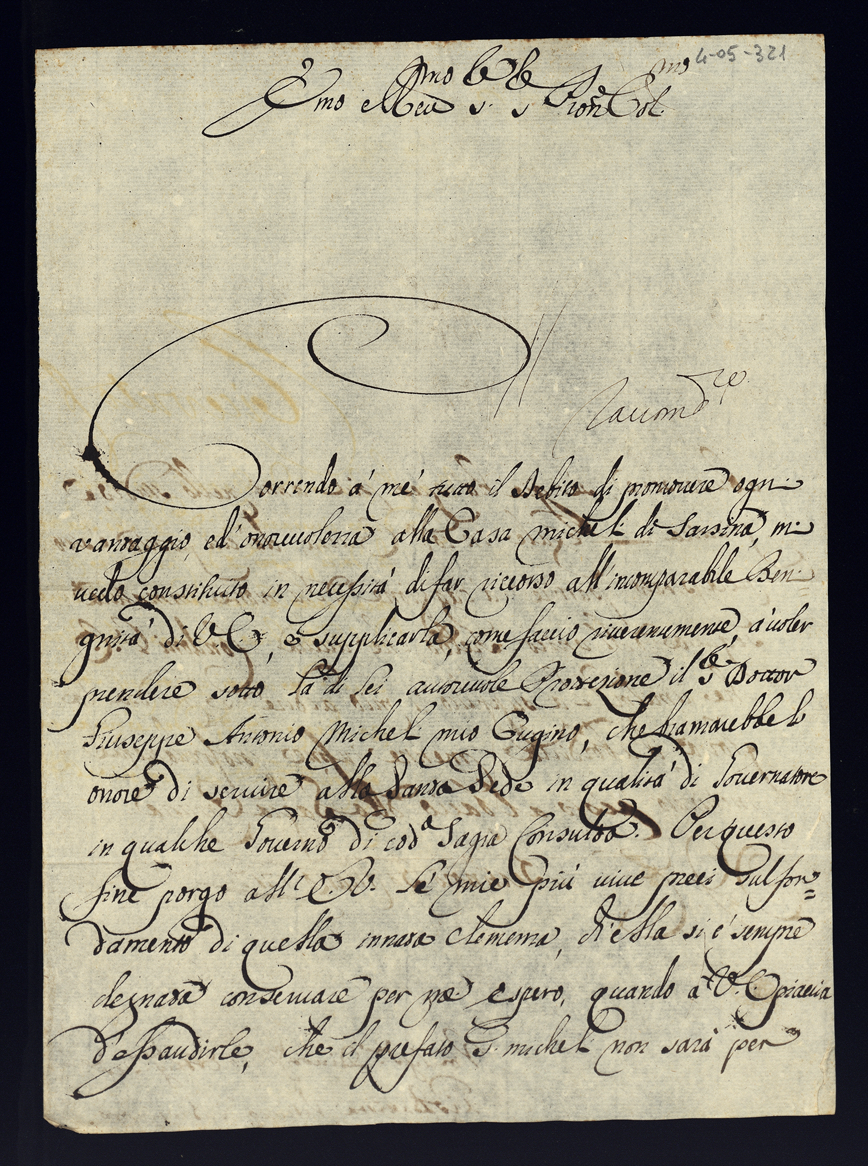 4-05-321
Emo e Rmo Sig.r Sig.r Pron Colmo
Raccom.de
Correndo à me tutto il Debito di promovere ogni
vantaggio, ed' onorevolezza alla Casa Micheli di Sarsina, mi
vedo constituto in necessità di far ricorso all' incomparabile Beni
gnità di V E, e supplicarla, come faccio riverentemente, à voler
prendere sotto la di lei autorevole Protezione il Sr Dottor
Giuseppe Antonio Micheli mio Cugino, che bramarebbe l'
onore di servire alla Santa Sede in qualità di Governatore
in qualche Governo di coda Sagra Consulta. Per questo
fine porgo all' E.V. le mie più vive preci sul fon=
damento di quella innata clemenza, ch'ella si è sempre
degnata conservare per me e spero, quando a V.E. piaccia
d'essaudirle, che il prefato S. Micheli non sarà per